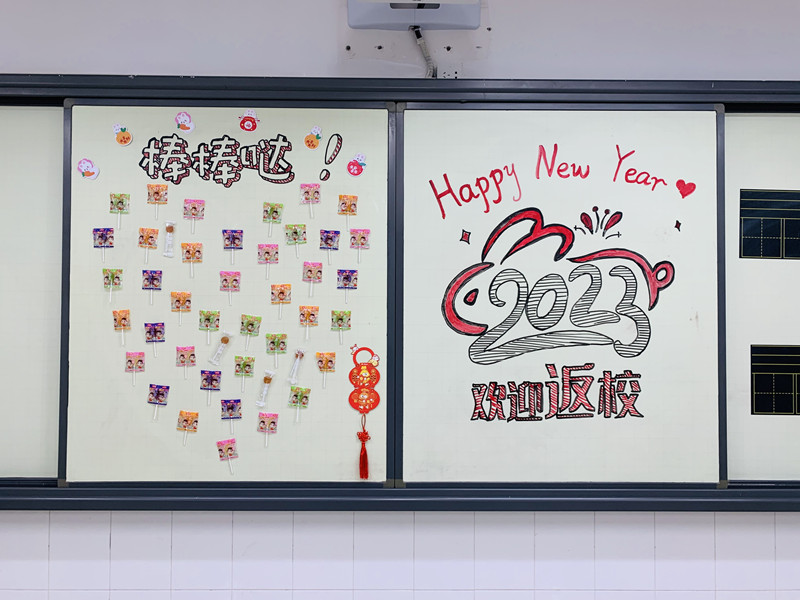 棒棒哒!
Happy New Year
2023
欢迎返校